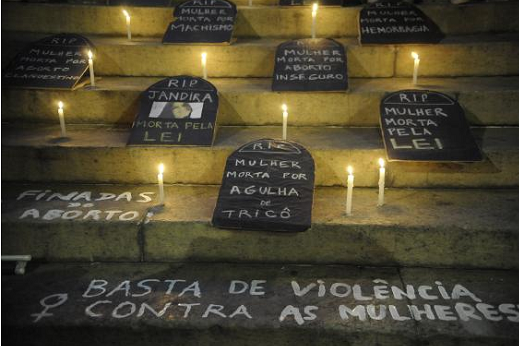 RIP
MULHER
MORTA POR
MACHISMO
MULHER
MORTA POR
HEMORRAGIA
MULHER
MORTA POR
ABORTO
CLANDESTINO
RIP
MULHER
MORTA POR
ABORTO
INSEGURO
RIP
JANDIRA
MORTA PELA
LEI
RIP
MULHER
MORTA
PELA
LEI
MULHER
MORTA POR
AGULHA
DE
TRICÔ
FINADAS
DO
ABORTO
BASTA DE VIOLÊNCIA
CONTRA AS MULHERES